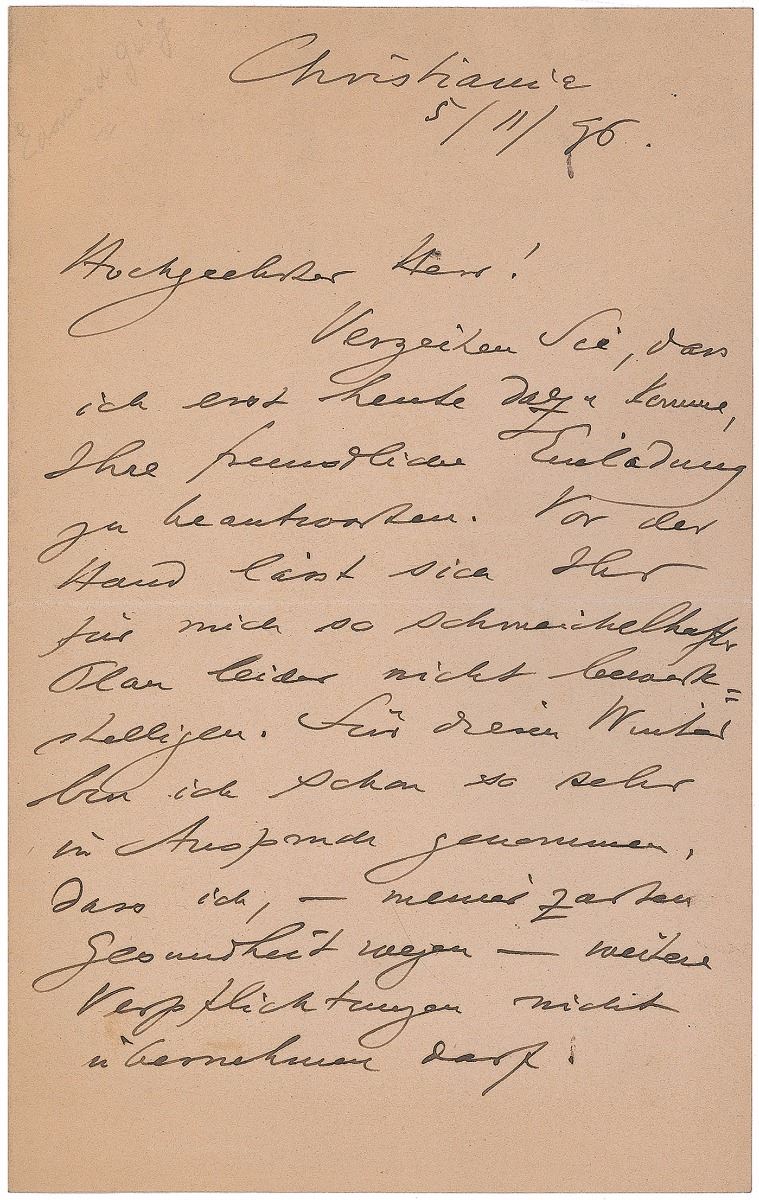 Christiania
5/11/96.
Hochgeehrter Herr!
Verzeihen Sie, dass
ich erst heute dazu komme,
Ihre freundliche Einladung
zu beantworten. Vor der
Hand lässt sich Ihr
für mich so schmeichelhafter
Plan leider nicht bewerk=
stelligen. Für diesen Winter
bin ich schon so sehr
in Anspruch genommen,
dass ich, — meiner zarten
Gesundheit wegen — weitere
Verpflichtungen nicht
übernehmen darf!